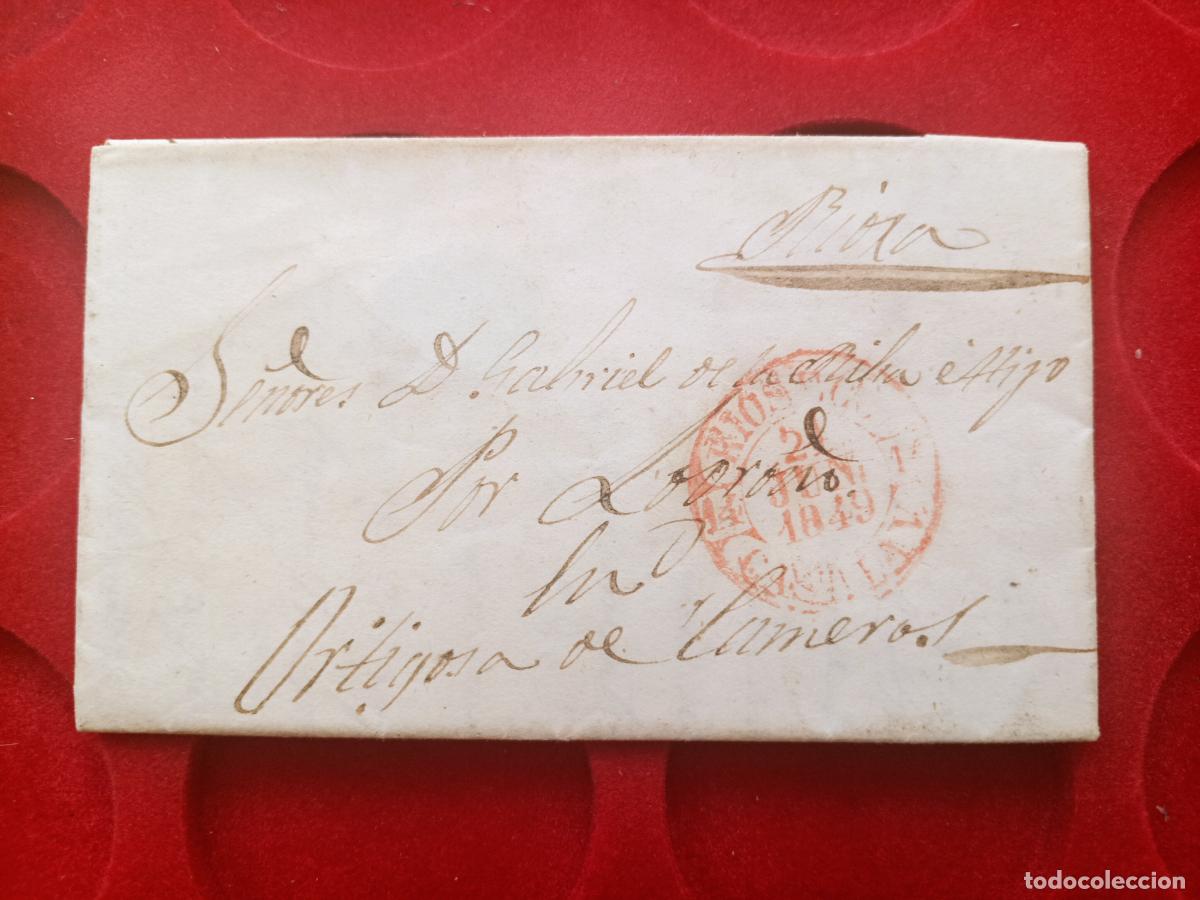 Rioxa
Señores D. Gabriel de la Riba é Hijo
Por Logroño
En
Ortigosa de Cameros
2
JUN
1849
CASTLA LA V.
todocoleccion